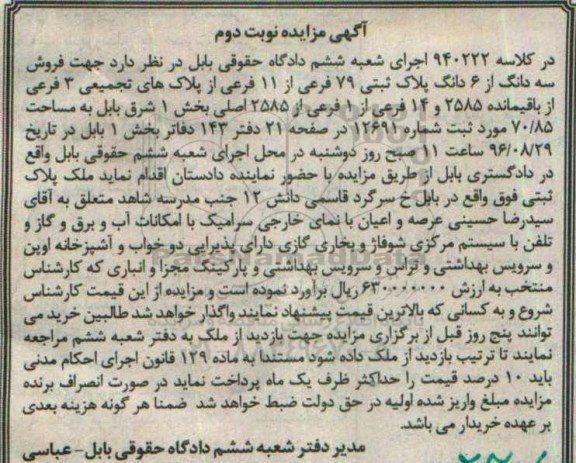 آگهی مزایده نوبت دوم
در کلاسه ۹۴۰۲۲۲ اجرای شعبه ششم دادگاه حقوقی بابل در نظر دارد جهت فروش
سه دانگ از ۶ دانگ پلاک ثبتی ۷۹ فرعی از ۱۱ فرعی از پلاک های تجمیعی ۳ فرعی
از باقیمانده ۲۵۸۵ و ۱۴ فرعی از ۱ فرعی از ۲۵۸۵ اصلی بخش ۱ شرق بابل به مساحت
۷۰/۸۵ مورد ثبت شماره ۱۲۶۹۱ در صفحه ۲۱ دفتر ۱۴۳ دفاتر بخش ۱ بابل در تاریخ
۹۶/۰۸/۲۹ ساعت ۱۱ صبح روز دوشنبه در محل اجرای شعبه ششم حقوقی بابل واقع
در دادگستری بابل از طریق مزایده با حضور نماینده دادستان اقدام نماید ملک پلاک
ثبتی فوق واقع در بابل خ سرگرد قاسمی دانش ۱۲ جنب مدرسه شاهد متعلق به آقای
سیدرضا حسینی عرصه و اعیان با نمای خارجی سرامیک با امکانات آب و برق و گاز و
تلفن با سیستم مرکزی شوفاژ و بخاری گازی دارای پذیرایی دو خواب و آشپزخانه اوپن
و سرویس بهداشتی و تراس و سرویس بهداشتی و پارکینگ مجزا و انباری که کارشناس
منتخب به ارزش ۶۳۰۰۰۰۰۰۰ ریال برآورد نموده است و مزایده از این قیمت کارشناس
شروع و به کسانی که بالاترین قیمت پیشنهاد نمایند واگذار خواهد شد طالبین خرید می
توانند پنج روز قبل از برگزاری مزایده جهت بازدید از ملک به دفتر شعبه ششم مراجعه
نمایند تا ترتیب بازدید از ملک داده شود مستندا به ماده ۱۲۹ قانون اجرای احکام مدنی
باید ۱۰ درصد قیمت را حداکثر ظرف یک ماه پرداخت نماید در صورت انصراف برنده
مزایده مبلغ واریز شده اولیه در حق دولت ضبط خواهد شد ضمنا هر گونه هزینه بعدی
بر عهده خریدار می باشد.
مدیر دفتر شعبه ششم دادگاه حقوقی بابل- عباسی